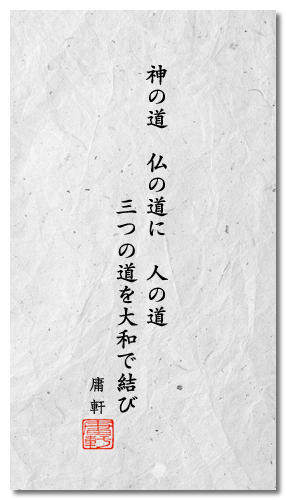 神の道　仏の道に　人の道
三つの道を大和で結び
庸軒
庸軒